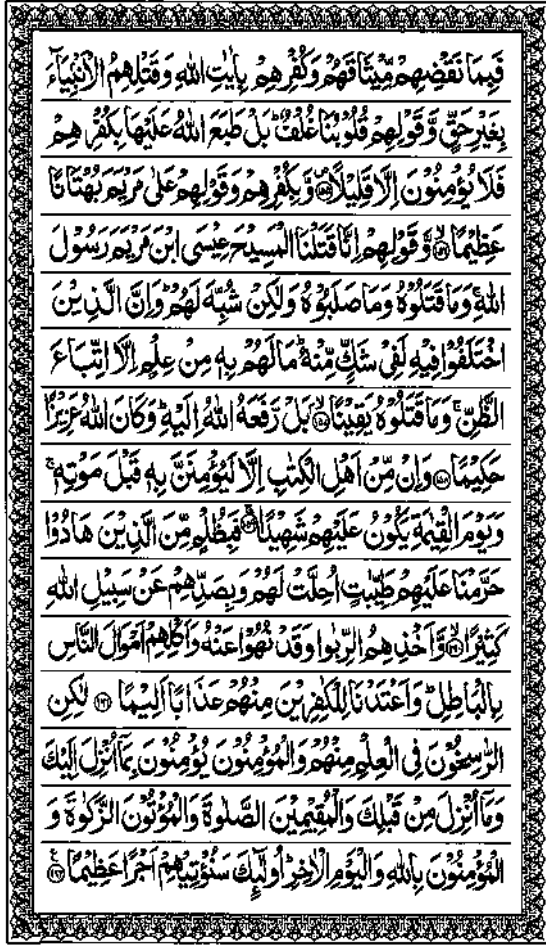 فَبِمَا نَقْضِهِمْ مِّيْثَاقَهُمْ وَكُفْرِهِمْ بِاٰيٰتِ اللّٰهِ وَقَتْلِهِمُ الْاَنْۢبِيَآءَ
بِغَيْرِ حَقٍّ وَّقَوْلِهِمْ قُلُوْبُنَا غُلْفٌ ؕ بَلْ طَبَعَ اللّٰهُ عَلَيْهَا بِكُفْرِهِمْ
فَلَا يُؤْمِنُوْنَ اِلَّا قَلِيْلًا ۪﴿۱۵۵﴾ وَّبِكُفْرِهِمْ وَقَوْلِهِمْ عَلٰى مَرْيَمَ بُهْتَانًا
عَظِيْمًا ﴿۱۵۶﴾ۙ وَّقَوْلِهِمْ اِنَّا قَتَلْنَا الْمَسِيْحَ عِيْسَى ابْنَ مَرْيَمَ رَسُوْلَ
اللّٰهِ ۚ وَمَا قَتَلُوْهُ وَمَا صَلَبُوْهُ وَلٰكِنْ شُبِّهَ لَهُمْ ؕ وَاِنَّ الَّذِيْنَ
اخْتَلَفُوْا فِيْهِ لَفِيْ شَكٍّ مِّنْهُ ؕ مَا لَهُمْ بِهٖ مِنْ عِلْمٍ اِلَّا اتِّبَاعَ
الظَّنِّ ۚ وَمَا قَتَلُوْهُ يَقِيْنًا ﴿۱۵۷﴾ۙ بَلْ رَّفَعَهُ اللّٰهُ اِلَيْهِ ؕ وَكَانَ اللّٰهُ عَزِيْزًا
حَكِيْمًا ﴿۱۵۸﴾ وَاِنْ مِّنْ اَهْلِ الْكِتٰبِ اِلَّا لَيُؤْمِنَنَّ بِهٖ قَبْلَ مَوْتِهٖ ۚ
وَيَوْمَ الْقِيٰمَةِ يَكُوْنُ عَلَيْهِمْ شَهِيْدًا ﴿۱۵۹﴾ۚ فَبِظُلْمٍ مِّنَ الَّذِيْنَ هَادُوْا
حَرَّمْنَا عَلَيْهِمْ طَيِّبٰتٍ اُحِلَّتْ لَهُمْ وَبِصَدِّهِمْ عَنْ سَبِيْلِ اللّٰهِ
كَثِيْرًا ﴿۱۶۰﴾ۙ وَّاَخْذِهِمُ الرِّبٰوا وَقَدْ نُهُوْا عَنْهُ وَاَكْلِهِمْ اَمْوَالَ النَّاسِ
بِالْبَاطِلِ ؕ وَاَعْتَدْنَا لِلْكٰفِرِيْنَ مِنْهُمْ عَذَابًا اَلِيْمًا ﴿۱۶۱﴾ لٰكِنِ
الرّٰسِخُوْنَ فِي الْعِلْمِ مِنْهُمْ وَالْمُؤْمِنُوْنَ يُؤْمِنُوْنَ بِمَآ اُنْزِلَ اِلَيْكَ
وَمَآ اُنْزِلَ مِنْ قَبْلِكَ وَالْمُقِيْمِيْنَ الصَّلٰوةَ وَالْمُؤْتُوْنَ الزَّكٰوةَ وَ
الْمُؤْمِنُوْنَ بِاللّٰهِ وَالْيَوْمِ الْاٰخِرِ ؕ اُولٰٓئِكَ سَنُؤْتِيْهِمْ اَجْرًا عَظِيْمًا ﴿۱۶۲﴾ؒ